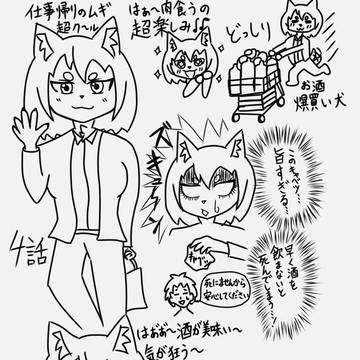 仕事帰りのムギ
超クール
はぁ〜肉食うの
超楽しみ♪
どっしり
お酒
爆買い犬
ズキューン
このキャベツ…
旨すぎる…
早く酒を
飲まないと
死んでしまう…ッ
ギュッ
死にませんから
安心してください
4話
はぁぁ〜酒が美味い〜
気が狂う〜